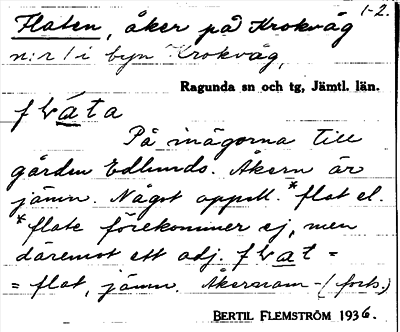 1-2.
Flaten, åker på Krokvåg
n:r 1 i byn Krokvåg,
Ragunda sn och tg, Jämtl. län.
fḷata
På inägorna till
gården Edlunds. Åkern är
jämn. Något appell. *flat el.
*flate förekommer ej, men
däremot ett adj. fḷat =
= flat, jämn. Åkernam- (forts.)
BERTIL FLEMSTRÖM 1936.